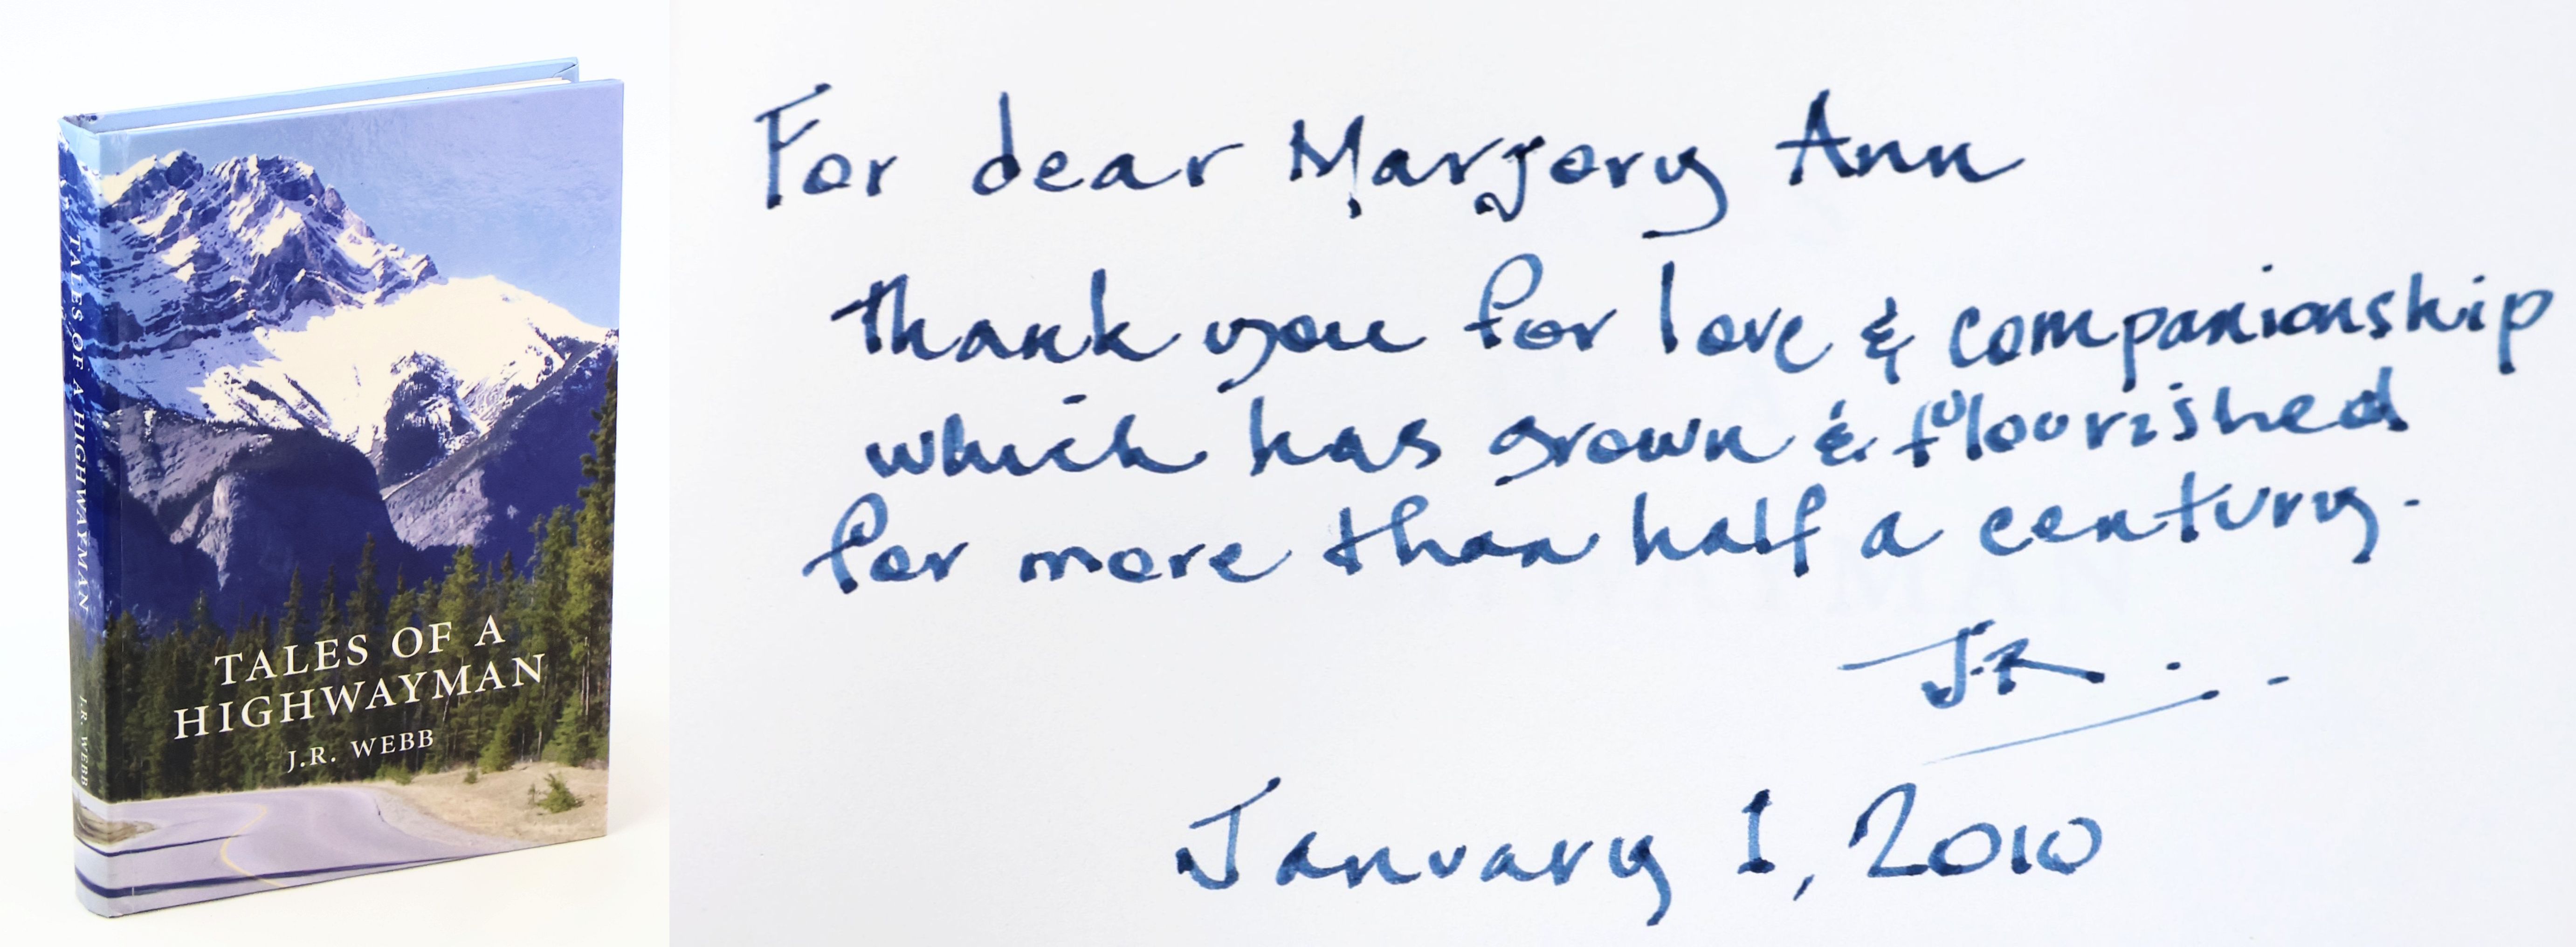 TALES OF A HIGHWAYMAN
J.R. WEBB
TALES OF A
HIGHWAYMAN
J.R. WEBB
For dear Marjory Ann
thank you for love & companionship
which has grown & flourished
for more than half a century.
J.R.
January 1, 2010